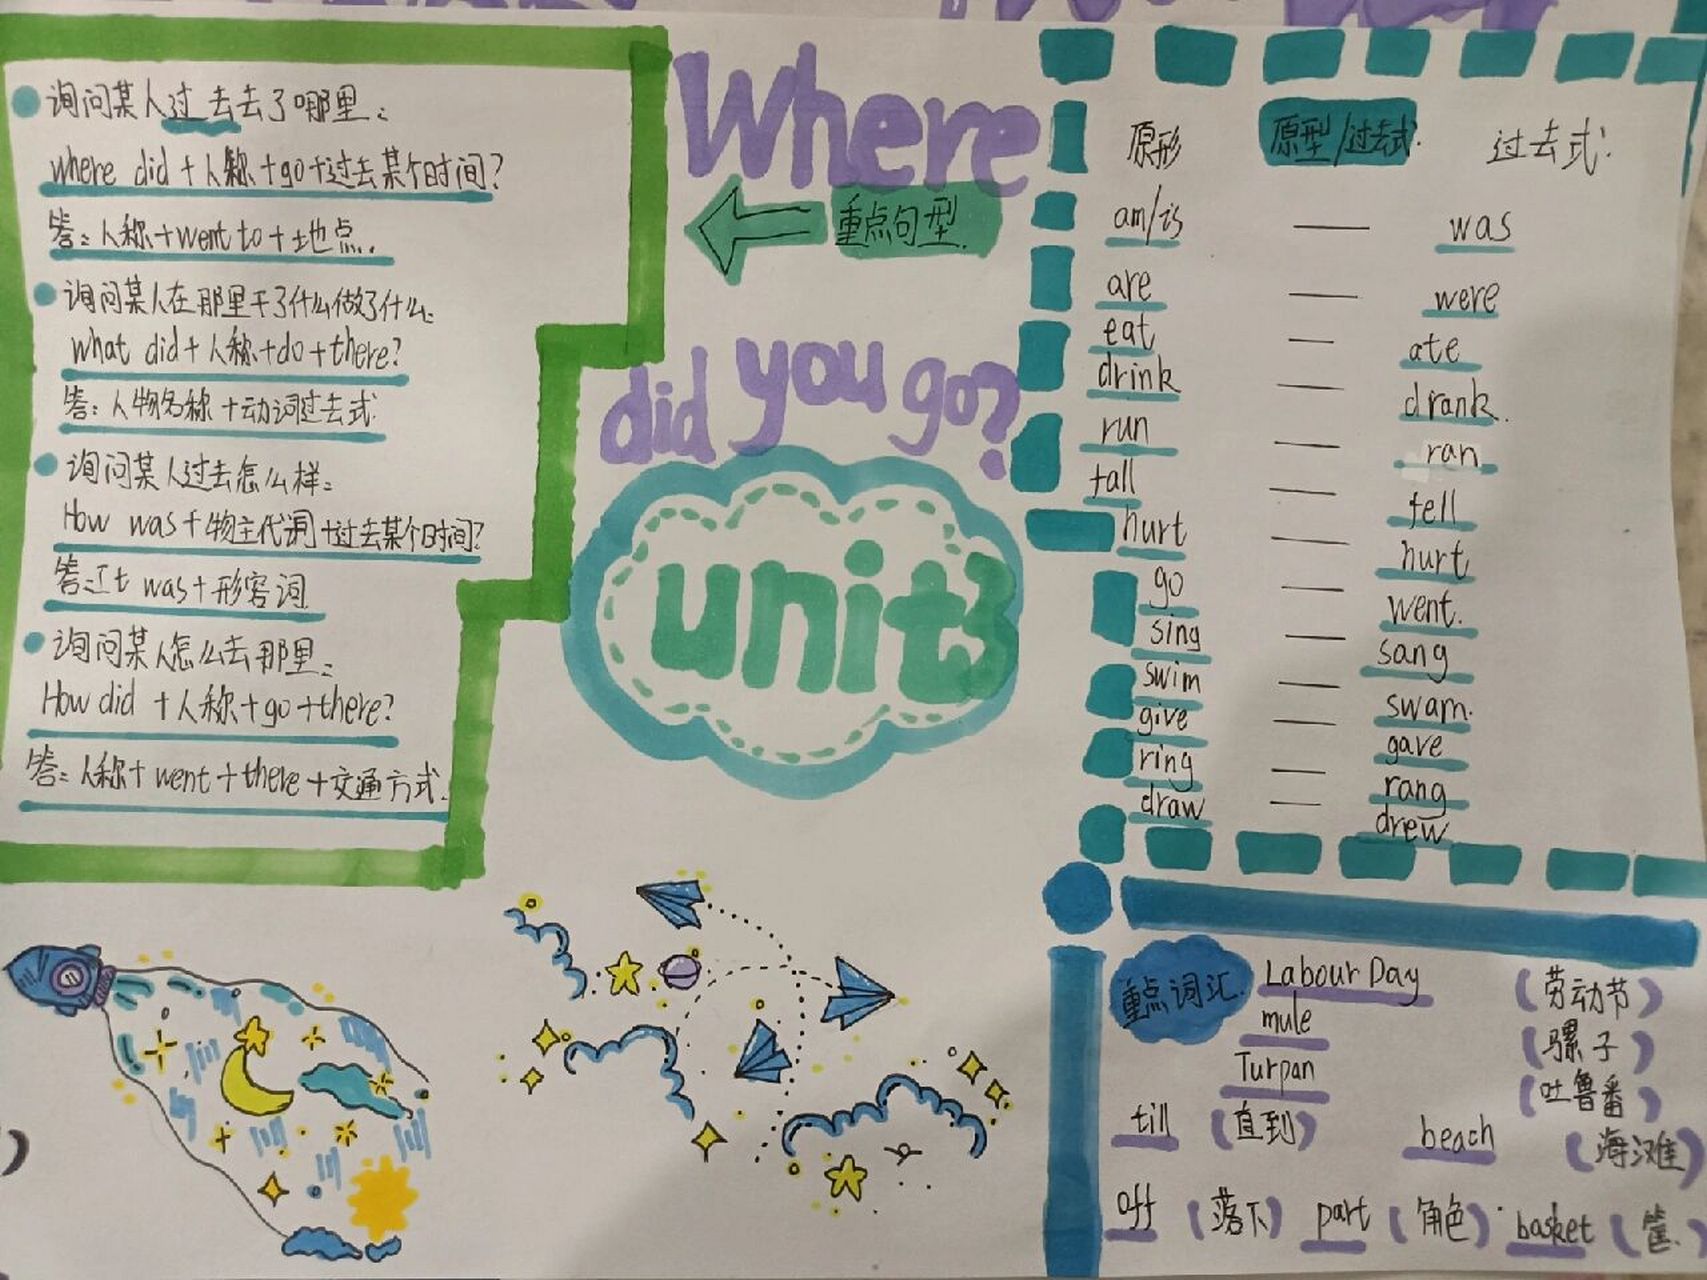 询问某人过去去了哪里:
where did+人称+go+过去某个时间?
答:人称+went to+地点.
询问某人在那里干了什么做了什么:
What did+人称+do+there?
答:人物名称+动词过去式.
询问某人过去怎么样:
How was+物主代词+过去某个时间?
答:It was+形容词
询问某人怎么去那里:
How did+人称+go+there?
答:人称+went+there+交通方式.
Where
重点句型.
did you go?
unit3
原形 原型/过去式. 过去式:
am/is — was
are — were
eat — ate
drink — drank.
run — ran
fall — fell
hurt — hurt
go — went.
sing — sang
swim — swam.
give — gave
ring — rang
draw — drew
重点词汇. Labour Day (劳动节)
mule (骡子)
Turpan (吐鲁番)
till (直到) beach (海滩)
off (落下) part (角色). basket (筐.